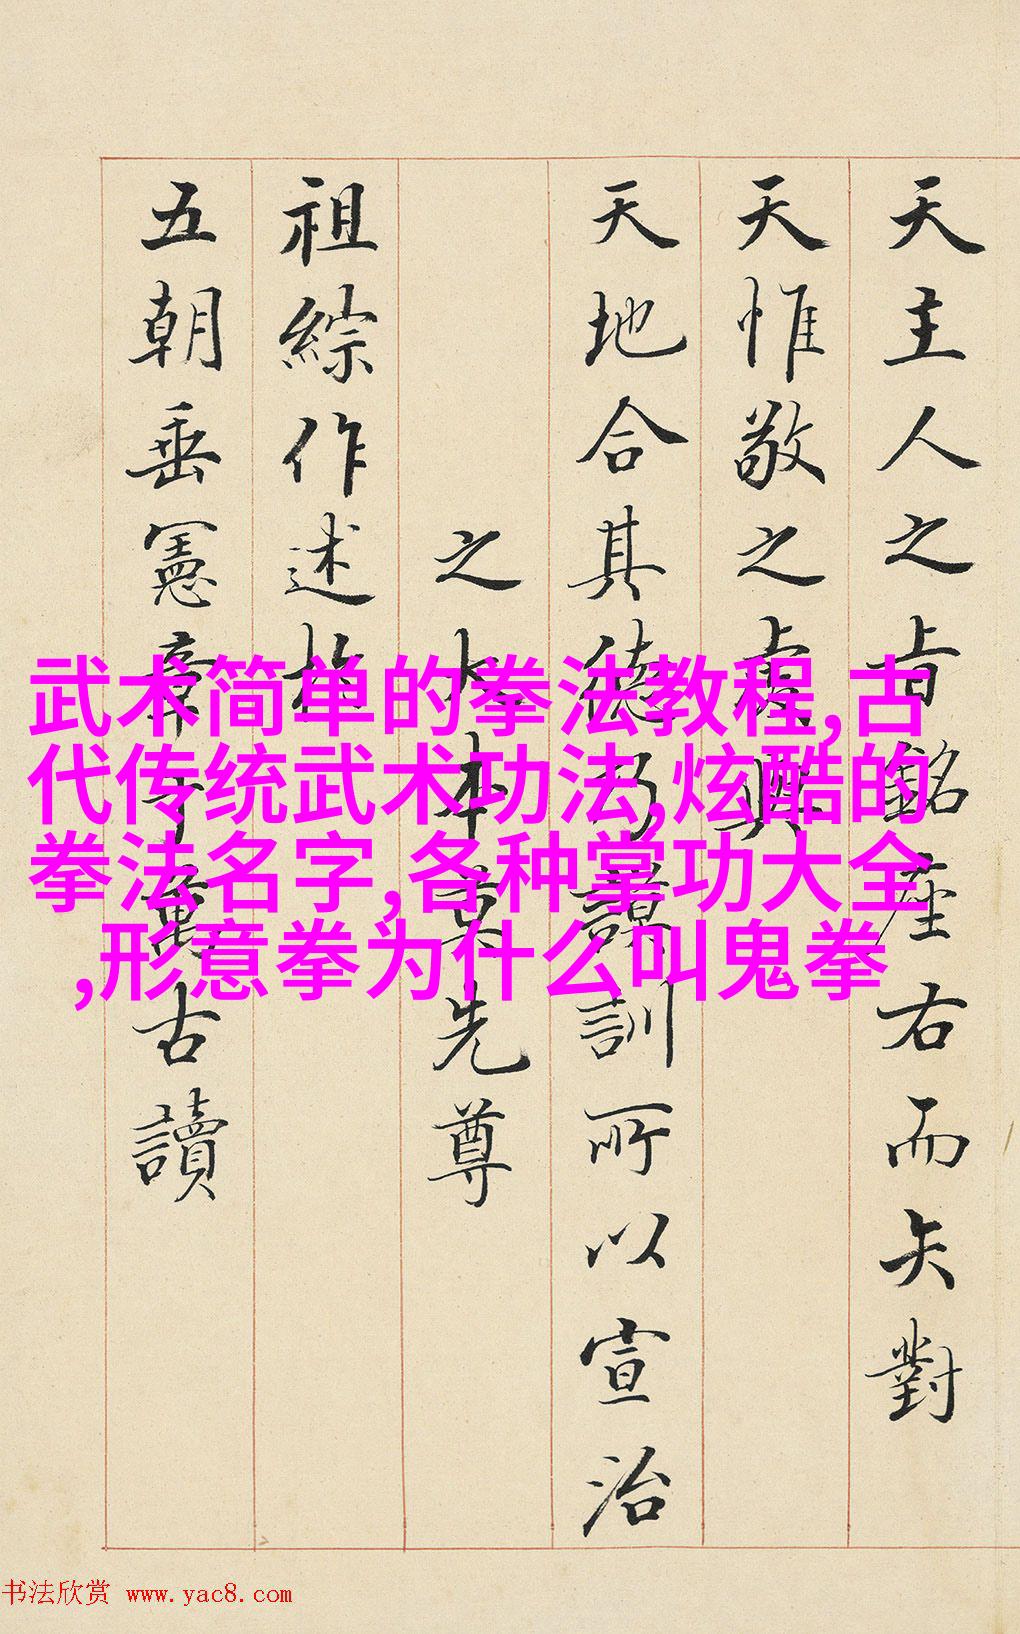 天主人之銘座右而矢對
天惟敬之
天地合其德乃謨訓所以宣治
之大本先尊
祖綜作述於
五朝垂憲章千萬古讀
武术简单的拳法教程,古
代传统武术功法,炫酷的
拳法名字,各种掌功大全
,形意拳为什么叫鬼拳
书法欣赏 www.yac8.com